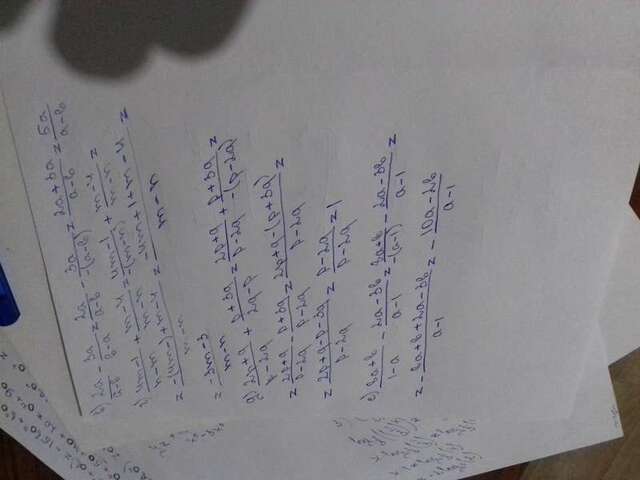 б) 2a/a-b - 3a/b-a = 2a/a-b - 3a/-(a-b) = 2a+3a/a-b = 5a/a-b
г) 4m-1/n-m + m-4/m-n = 4m-1/-(m-n) + m-4/m-n =
= -(4m-1)+m-4/m-n = -4m+1+m-4/m-n =
= -3m-3/m-n
д) 2p+q/p-2q + p+3q/2q-p = 2p+q/p-2q + p+3q/-(p-2q) =
= 2p+q/p-2q - p+3q/p-2q = 2p+q-(p+3q)/p-2q =
= 2p+q-p-3q/p-2q = p-2q/p-2q = 1
е) 8a+b/1-a - 2a-3b/a-1 = 8a+b/-(a-1) - 2a-3b/a-1 =
= - 8a+b+2a-3b/a-1 = - 10a-2b/a-1